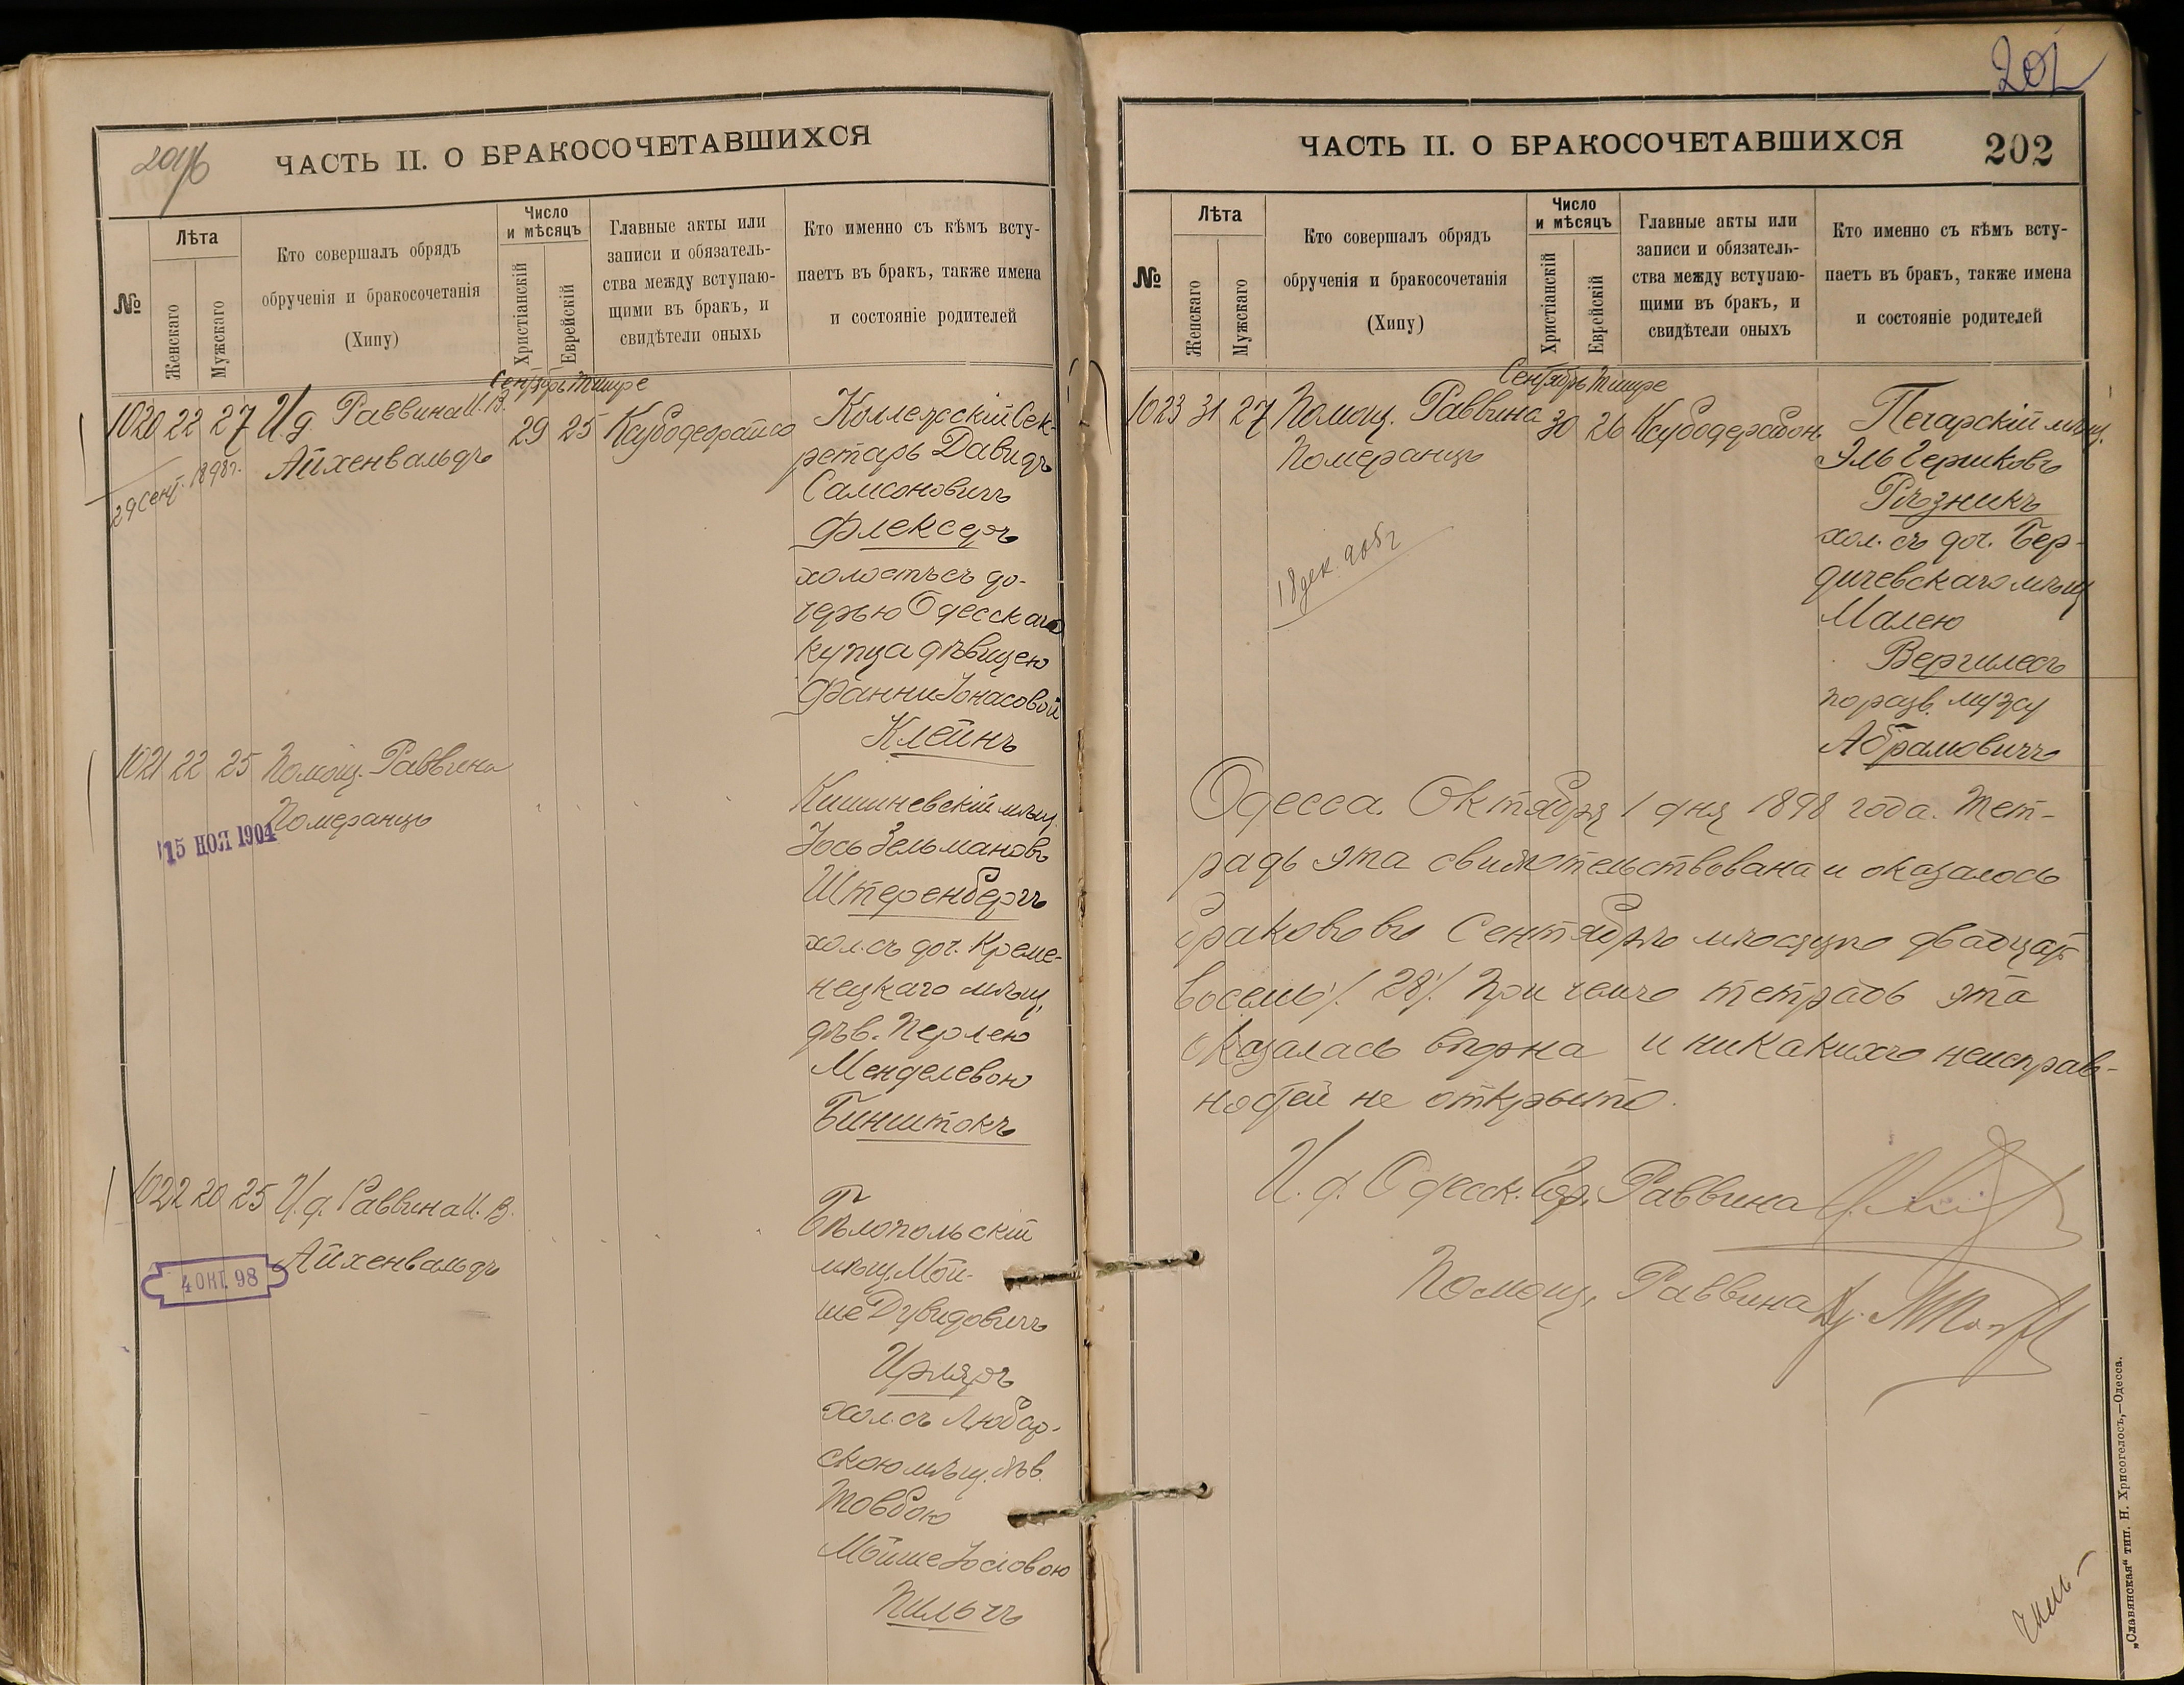 201/б
ЧАСТЬ II. О БРАКОСОЧЕТАВШИХСЯ
№
Лѣта
Женскаго
Мужскаго
Кто совершалъ обрядъ
обрученія и бракосочетанія
(Хипу)
Число
и мѣсяцъ
Христіанскій
Еврейскій
Главные акты или
записи и обязатель-
ства между вступаю-
щими въ бракъ, и
свидѣтели оныхъ
Кто именно съ кѣмъ всту-
паетъ въ бракъ, также имена
и состояніе родителей
Сентябрь Тишре
1020 22 27 И. д. Раввина И. В.
Айхенвальдъ
29 25
29 Сент. 1898 г.
Коллежскій Сек-
ретарь Давидъ
Самсоновичъ
Флексеръ
холостъ съ до-
черью Одесскаго
купца дѣвицею
Фанни Іонасовой
Клейнъ
1021 22 25 Помощ. Раввина
Померанцъ
15 НОЯ 1904
Кишиневскій мѣщ.
Іось Зельмановъ
Штеренбергъ
хол. съ доч. Креме-
нецкаго мѣщ.
дѣв. Перлею
Менделевою
Бинштокъ
1022 20 25 И. д. Раввина И. В.
Айхенвальдъ
4 ОКТ. 98
Бѣлопольскій
мѣщ. Мой-
ше Дувидовичъ
Ирляръ
хол. съ Любар-
скою мѣщ. дѣв.
Товбою
Мойше Іосіовою
Пильчъ
202
ЧАСТЬ II. О БРАКОСОЧЕТАВШИХСЯ
202
№
Лѣта
Женскаго
Мужскаго
Кто совершалъ обрядъ
обрученія и бракосочетанія
(Хипу)
Число
и мѣсяцъ
Христіанскій
Еврейскій
Главные акты или
записи и обязатель-
ства между вступаю-
щими въ бракъ, и
свидѣтели оныхъ
Кто именно съ кѣмъ всту-
паетъ въ бракъ, также имена
и состояніе родителей
Сентябрь Тишре
1023 31 27 Помощ. Раввина
Померанцъ
30 26
18 дек. 905 г
Печарскій мѣщ.
Эль Гершковъ
Рѣзникъ
хол. съ доч. Бер-
дичевскаго мѣщ
Малею
Вергилесъ
по разв. мужу
Абрамовичъ
Одесса. Октября 1 дня 1898 года. Тет-
радь эта свидѣтельствована и оказалось
браковъ въ Сентябрѣ мѣсяцѣ двадцать
восемь /. 28 /. При чемъ тетрадь эта
оказалась вѣрна и никакихъ неисправ-
ностей не открыто.
И. д. Одесск. Гор. Раввина
Помощ. Раввина
„Славянская“ тип. Н. Хрисогелосъ,—Одесса.